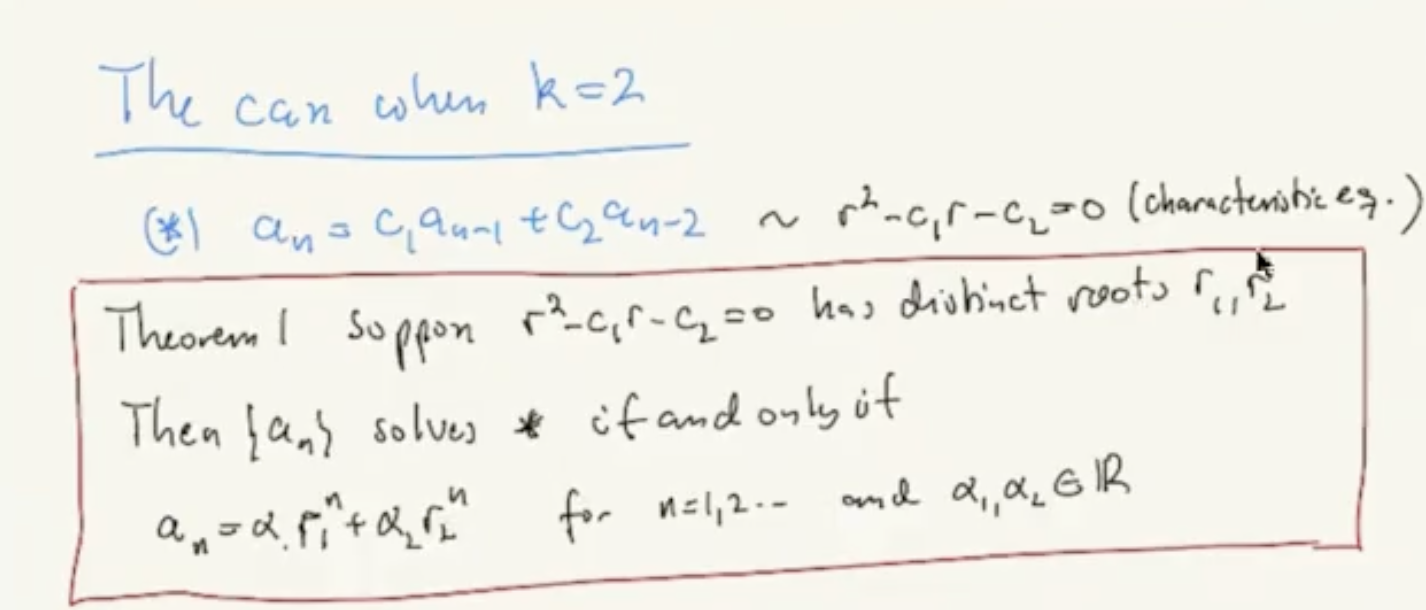 The case when k=2
(*) aₙ = c₁aₙ₋₁ + c₂aₙ₋₂ ~ r²-c₁r-c₂=0 (characteristic eq.)
Theorem 1 Suppose r²-c₁r-c₂=0 has distinct roots r₁,r₂
Then {aₙ} solves * if and only if
aₙ = α₁r₁ⁿ + α₂r₂ⁿ for n=1,2... and α₁,α₂∈ℝ